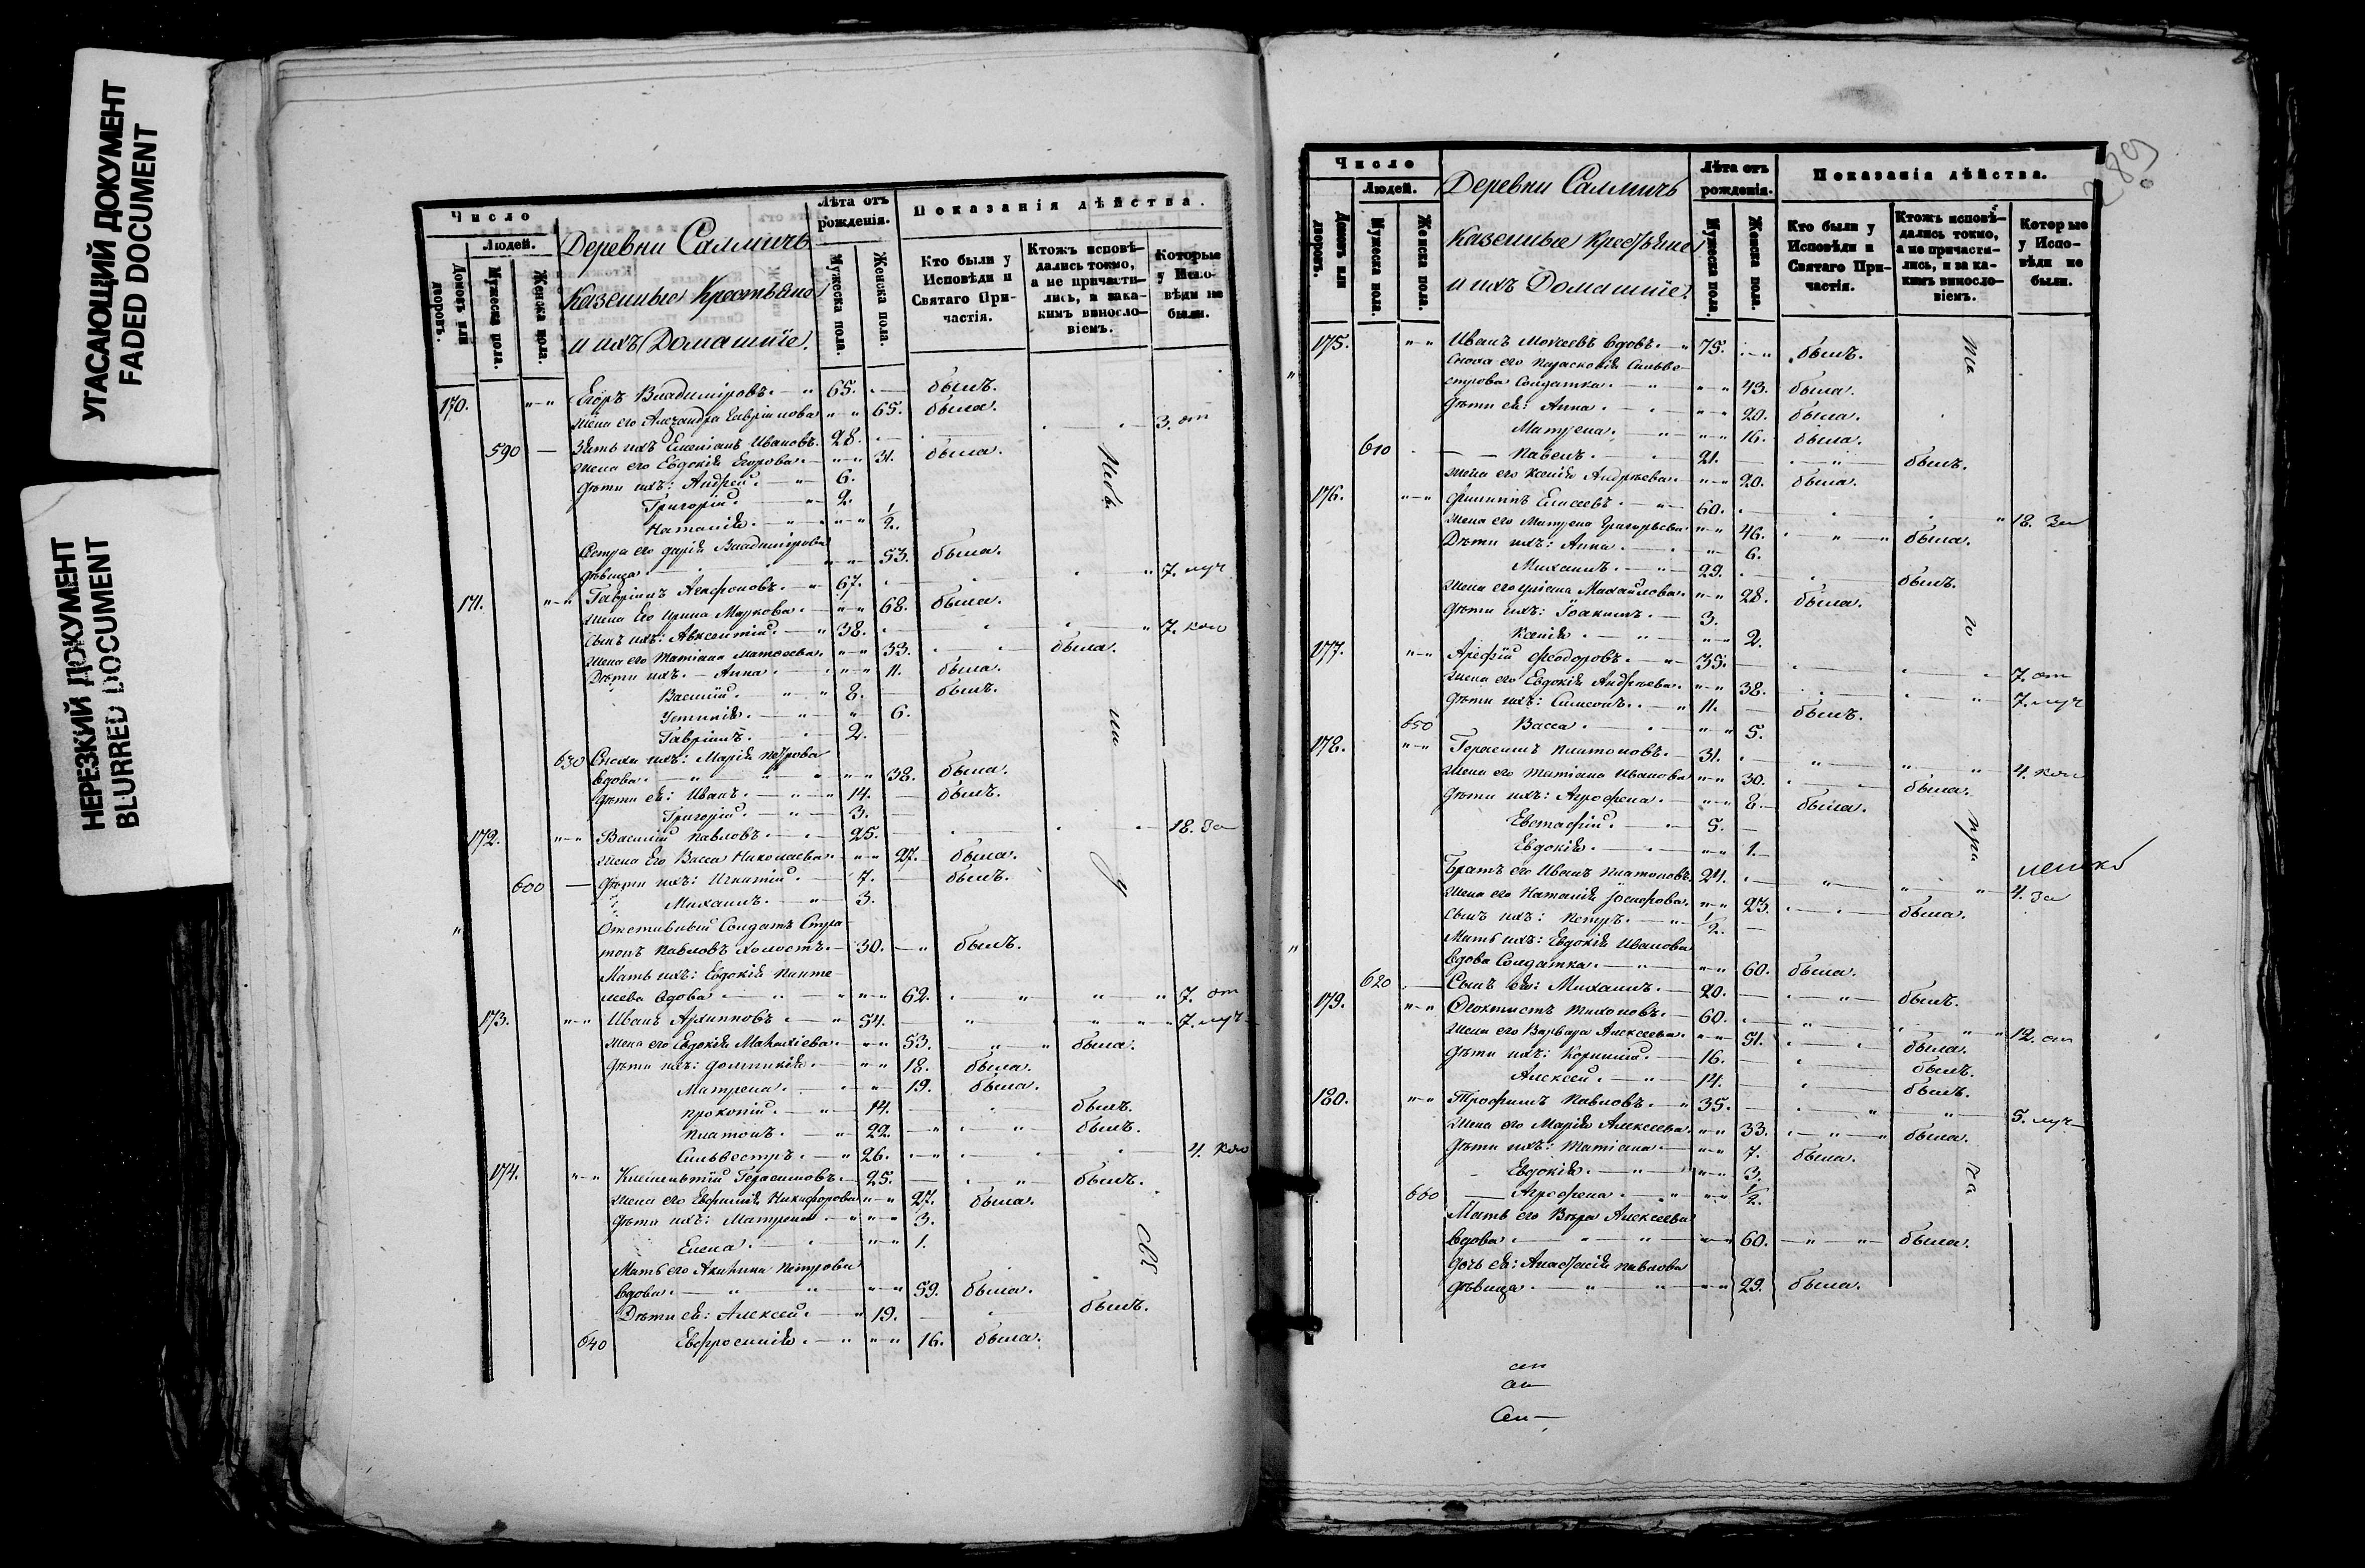 УГАСАЮЩИЙ ДОКУМЕНТ
FADED DOCUMENT
НЕРЕЗКИЙ ДОКУМЕНТ
BLURRED DOCUMENT
Число
Людей.
Домовъ или дворовъ.
Мужеска пола.
Женска пола.
Деревни Саллмичъ
Казенные Крестьяне
и ихъ Домашніе.
Лѣта отъ рожденія.
Мужеска пола.
Женска пола.
Показанія дѣйства.
Кто были у Исповѣди и Святаго Причастія.
Ктожъ исповѣдались токмо, а не причастились, и зака кимъ винословіемъ.
Которые у Исповѣди не были.
170. Егоръ Владиміровъ. 65. былъ.
Жена его Александра Гавріилова 65. была.
590 Зять ихъ Емеліанъ Ивановъ. 28. 3. от
Жена его Евдокія Егорова. 31. была.
Дѣти ихъ: Андрей. 6.
Григорій. 2.
Наталія. 1/2.
Сестра его Дарія Владимірова
дѣвица. 53. была.
171. Гавріилъ Агафоновъ. 67. 7. луч
Жена Его Ирина Маркова. 68. была.
Сынъ ихъ: Авксентій. 38. 7. кои
Жена его Татіана Матвеева. 33. была.
Дѣти ихъ. Анна. 11. была.
Василій. 8. былъ.
Устинія. 6.
Гавріилъ. 2.
630 Сноха ихъ: Марія Петрова
вдова. 38. была.
Дѣти ея: Иванъ. 14. былъ.
Григорій. 3.
172. Василій Павловъ. 25. 18. За
Жена Его Васса Николаева. 27. была.
600 Дѣти ихъ: Игнатій. 7. былъ.
Михаилъ. 3.
Отставный Солдатъ Стра
тонъ Павловъ холостъ. 30. былъ.
Мать ихъ: Евдокія Панте
леева вдова 62. 7. от
173. Иванъ Архипповъ. 54. 7. луч
Жена его Евдокія 53. была.
Дѣти ихъ: Домникія. 18. была.
Матрена. 19. была.
Прокопій. 14. былъ.
Платонъ. 22. былъ.
Сильвестръ. 26. 4. кои
174. Климентій Герасимовъ. 25. былъ.
Жена его Евфимія Никифорова 27. была.
Дѣти ихъ: Матрена 3.
Елена. 1.
Мать его Акилина Петрова
вдова. 59. была.
Дѣти ея: Алексей. 19. былъ.
640 Евфросинія. 16. была.
289
Число
Людей.
Домовъ или дворовъ.
Мужеска пола.
Женска пола.
Деревни Саллмичъ
Казенные Крестьяне
и ихъ Домашніе.
Лѣта отъ рожденія.
Мужеска пола.
Женска пола.
Показанія дѣйства.
Кто были у Исповѣди и Святаго Причастія.
Ктожъ исповѣдались токмо, а не причастились, и за какимъ винословіемъ.
Которые у Исповѣди не были.
175. Иванъ Моисеевъ вдовъ. 75. былъ.
Сноха его Парасковія Сильве
строва Солдатка. 43. была.
Дѣти ея: Анна. 20. была.
Матрена. 16. была.
610 Павелъ. 21. былъ.
Жена его Ксенія Андреева. 20. была.
176. Филиппъ Елисеевъ. 60. 18. За
Жена его Матрена Григорьева 46. была.
Дѣти ихъ: Анна. 6.
Михаилъ. 29. былъ.
Жена его Михайлова. 28. была.
Дѣти ихъ: Іоакимъ. 3.
Ксенія. 2.
177. Арефій Феодоровъ. 35. 7. от
Жена его Евдокія Андреева. 38. 7. луч
Дѣти ихъ: Симеонъ. 11. былъ.
650 Васса. 5.
178. Герасимъ Платоновъ. 31. 4. кои
Жена его Татіана Иванова 30. была.
Дѣти ихъ: Агрофена. 8. была.
Евстафій. 5.
Евдокія. 1.
Братъ его Иванъ Платоновъ. 24. 4. За
Жена его Наталія Іосифова. 23. была.
Сынъ ихъ: Петръ. 1/2.
Мать ихъ: Евдокія Иванова
вдова Солдатка. 60. была.
620 Сынъ ея: Михаилъ. 20. былъ.
179. Феоктистъ Тихоновъ. 60. 12. от
Жена его Варвара Алексеева. 51. была.
Дѣти ихъ: Корнилій. 16. былъ.
Алексей. 14. былъ.
180. Трофимъ Павловъ. 35. 5. луч
Жена его Марія Алексеева. 33. была.
Дѣти ихъ: Татіана 7. была.
Евдокія. 3.
660 Агрофена. 1/2.
Мать его Вѣра Алексеева
вдова. 60. была.
Дочь ея: Анастасія Павлова
дѣвица. 29. была.